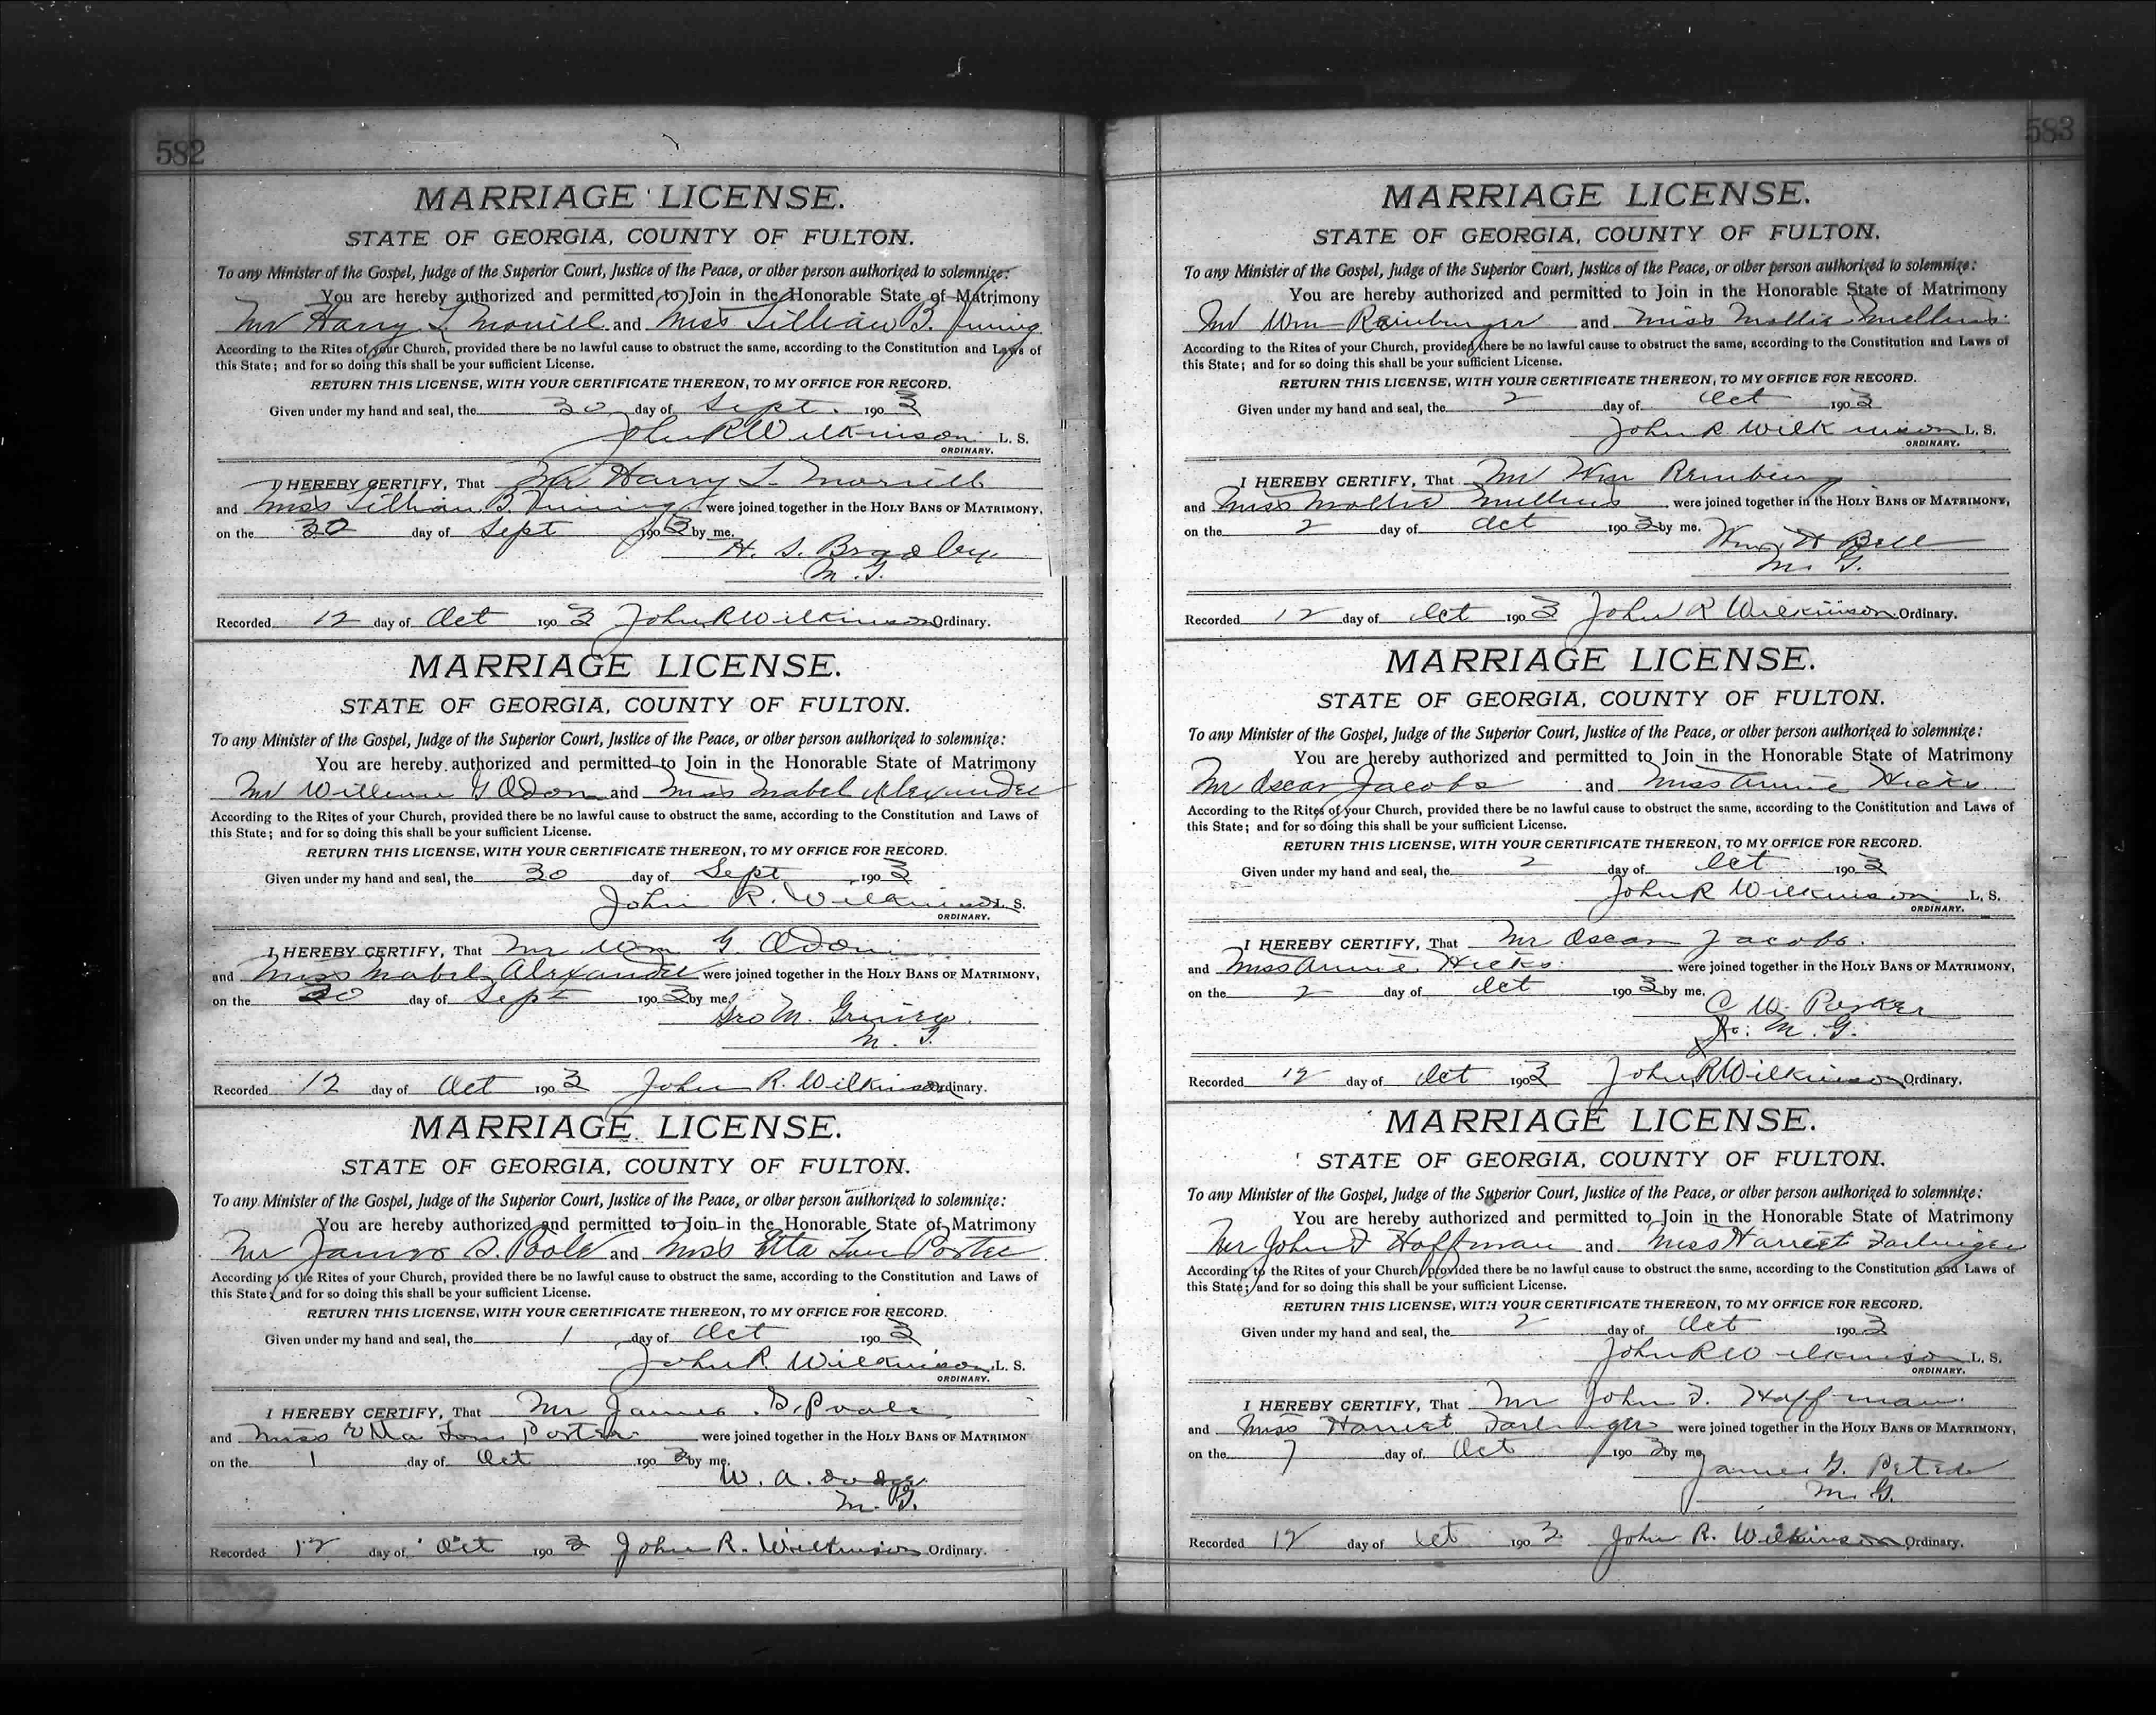 582
MARRIAGE LICENSE.
STATE OF GEORGIA, COUNTY OF FULTON.
To any Minister of the Gospel, Judge of the Superior Court, Justice of the Peace, or other person authorized to solemnize:
You are hereby authorized and permitted to Join in the Honorable State of Matrimony
Mr Harry L. Morrill and Miss Lillian B.
According to the Rites of your Church, provided there be no lawful cause to obstruct the same, according to the Constitution and Laws of
this State; and for so doing this shall be your sufficient License.
RETURN THIS LICENSE, WITH YOUR CERTIFICATE THEREON, TO MY OFFICE FOR RECORD.
Given under my hand and seal, the 30 day of Sept. 1903
John R Wilkinson L. S.
ORDINARY.
I HEREBY CERTIFY, That Mr Harry L. Morrill
and Miss Lillian B. were joined together in the HOLY BANS OF MATRIMONY,
on the 30 day of Sept 1903 by me.
H. S. Bradley
M. G.
Recorded 12 day of Oct 1903 John R Wilkinson Ordinary.
MARRIAGE LICENSE.
STATE OF GEORGIA, COUNTY OF FULTON.
To any Minister of the Gospel, Judge of the Superior Court, Justice of the Peace, or other person authorized to solemnize:
You are hereby authorized and permitted to Join in the Honorable State of Matrimony
Mr William G Odom and Miss Mabel Alexander
According to the Rites of your Church, provided there be no lawful cause to obstruct the same, according to the Constitution and Laws of
this State; and for so doing this shall be your sufficient License.
RETURN THIS LICENSE, WITH YOUR CERTIFICATE THEREON, TO MY OFFICE FOR RECORD.
Given under my hand and seal, the 30 day of Sept 1903
John R. Wilkinson L. S.
ORDINARY.
I HEREBY CERTIFY, That Mr Wm G Odom
and Miss Mabel Alexander were joined together in the HOLY BANS OF MATRIMONY,
on the 30 day of Sept 1903 by me.
Geo M.
M. G.
Recorded 12 day of Oct 1903 John R. Wilkinson Ordinary.
MARRIAGE LICENSE.
STATE OF GEORGIA, COUNTY OF FULTON.
To any Minister of the Gospel, Judge of the Superior Court, Justice of the Peace, or other person authorized to solemnize:
You are hereby authorized and permitted to Join in the Honorable State of Matrimony
Mr James S. Poole and Miss Etta Lou Porter
According to the Rites of your Church, provided there be no lawful cause to obstruct the same, according to the Constitution and Laws of
this State; and for so doing this shall be your sufficient License.
RETURN THIS LICENSE, WITH YOUR CERTIFICATE THEREON, TO MY OFFICE FOR RECORD.
Given under my hand and seal, the 1 day of Oct 1903
John R. Wilkinson L. S.
ORDINARY.
I HEREBY CERTIFY, That Mr James S. Poole
and Miss Etta Lou Porter were joined together in the HOLY BANS OF MATRIMON
on the 1 day of Oct 1903 by me.
W. A. Dodge
M. G.
Recorded 12 day of Oct 1903 John R. Wilkinson Ordinary.
583
MARRIAGE LICENSE.
STATE OF GEORGIA, COUNTY OF FULTON.
To any Minister of the Gospel, Judge of the Superior Court, Justice of the Peace, or other person authorized to solemnize:
You are hereby authorized and permitted to Join in the Honorable State of Matrimony
Mr Wm Reinburger and Miss Mollie Mullins
According to the Rites of your Church, provided there be no lawful cause to obstruct the same, according to the Constitution and Laws of
this State; and for so doing this shall be your sufficient License.
RETURN THIS LICENSE, WITH YOUR CERTIFICATE THEREON, TO MY OFFICE FOR RECORD.
Given under my hand and seal, the 2 day of Oct 1903
John R. Wilkinson L. S.
ORDINARY.
I HEREBY CERTIFY, That Mr Wm
and Miss Mollie Mullins were joined together in the HOLY BANS OF MATRIMONY,
on the 2 day of Oct 1903 by me.
Bell
M. G.
Recorded 12 day of Oct 1903 John R Wilkinson Ordinary.
MARRIAGE LICENSE.
STATE OF GEORGIA, COUNTY OF FULTON.
To any Minister of the Gospel, Judge of the Superior Court, Justice of the Peace, or other person authorized to solemnize:
You are hereby authorized and permitted to Join in the Honorable State of Matrimony
Mr Oscar Jacobs and Miss Annie Hicks
According to the Rites of your Church, provided there be no lawful cause to obstruct the same, according to the Constitution and Laws of
this State; and for so doing this shall be your sufficient License.
RETURN THIS LICENSE, WITH YOUR CERTIFICATE THEREON, TO MY OFFICE FOR RECORD.
Given under my hand and seal, the 2 day of Oct 1903
John R Wilkinson L. S.
ORDINARY.
I HEREBY CERTIFY, That Mr Oscar Jacobs
and Miss Annie Hicks were joined together in the HOLY BANS OF MATRIMONY,
on the 2 day of Oct 1903 by me.
C W. Parker
M. G.
Recorded 12 day of Oct 1903 John R Wilkinson Ordinary.
MARRIAGE LICENSE.
STATE OF GEORGIA, COUNTY OF FULTON.
To any Minister of the Gospel, Judge of the Superior Court, Justice of the Peace, or other person authorized to solemnize:
You are hereby authorized and permitted to Join in the Honorable State of Matrimony
Mr John F Hoffman and Miss Harriet Farlinger
According to the Rites of your Church, provided there be no lawful cause to obstruct the same, according to the Constitution and Laws of
this State; and for so doing this shall be your sufficient License.
RETURN THIS LICENSE, WITH YOUR CERTIFICATE THEREON, TO MY OFFICE FOR RECORD.
Given under my hand and seal, the 2 day of Oct 1903
John R Wilkinson L. S.
ORDINARY.
I HEREBY CERTIFY, That Mr John F. Hoffman
and Miss Harriet Farlinger were joined together in the HOLY BANS OF MATRIMONY,
on the 7 day of Oct 1903 by me.
James G.
M. G.
Recorded 12 day of Oct 1903 John R. Wilkinson Ordinary.